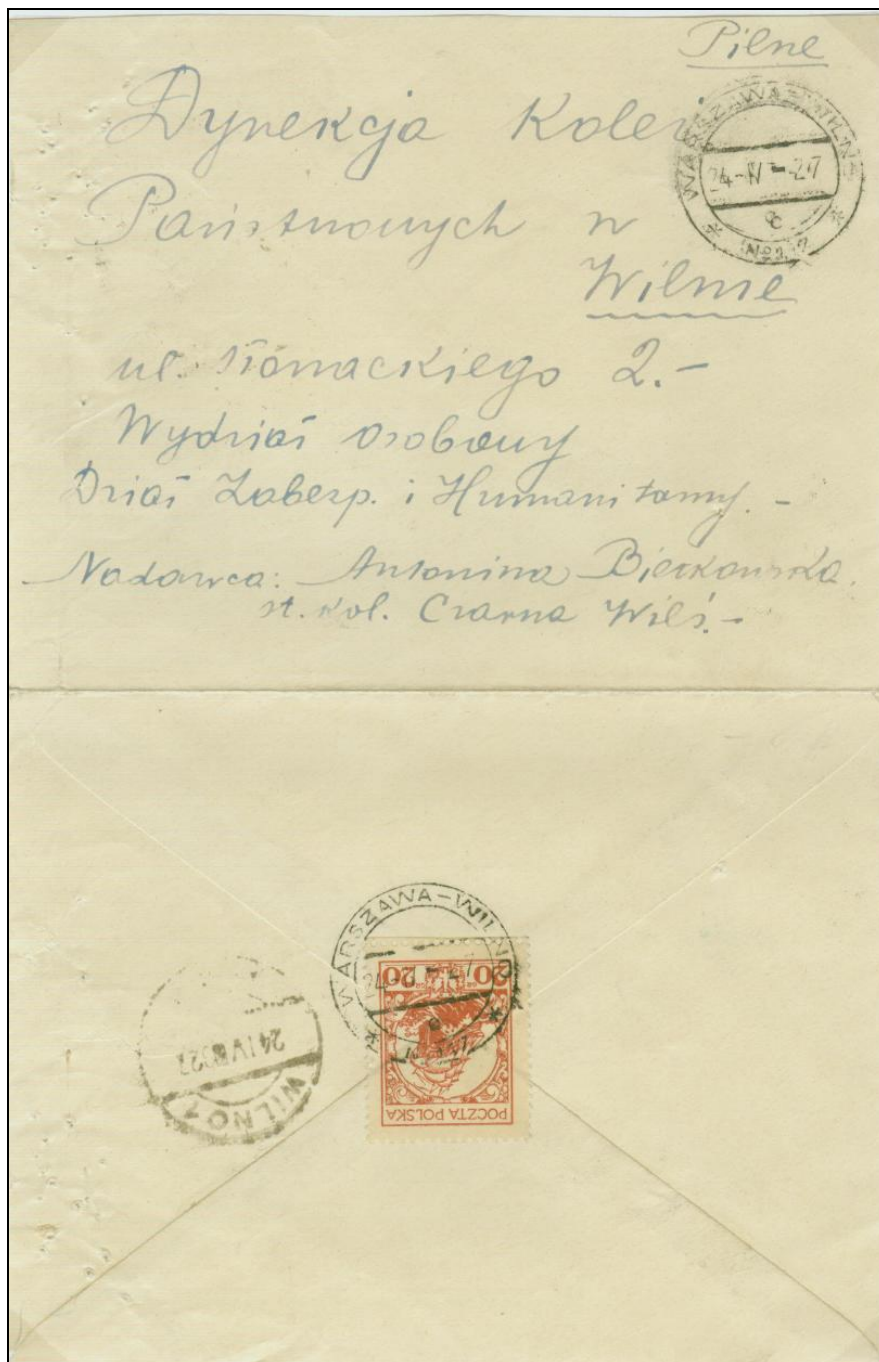 Pilne
Dyrekcja Kolei
Państwowych w
Wilnie
WARSZAWA-WILNO
24-IV-27
ul. Słowackiego 2.-
Wydział osobowy
Dział Zabezp. i Humanitarny.-
Nadawca: Antonina
st. kol. Czarna Wieś.-
WARSZAWA-WILNO
20 20
POCZTA POLSKA
24 IV 27
WILNO 1